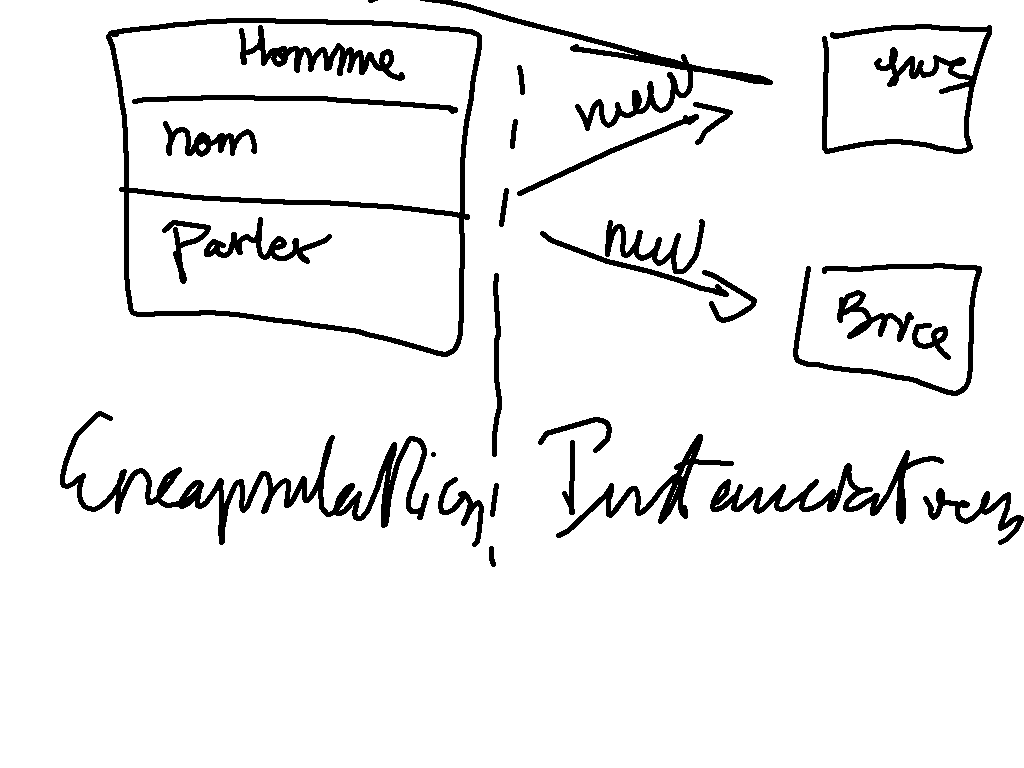 Homme
nom
Parler
new
new
Brice
Encapsulation
Instanciation